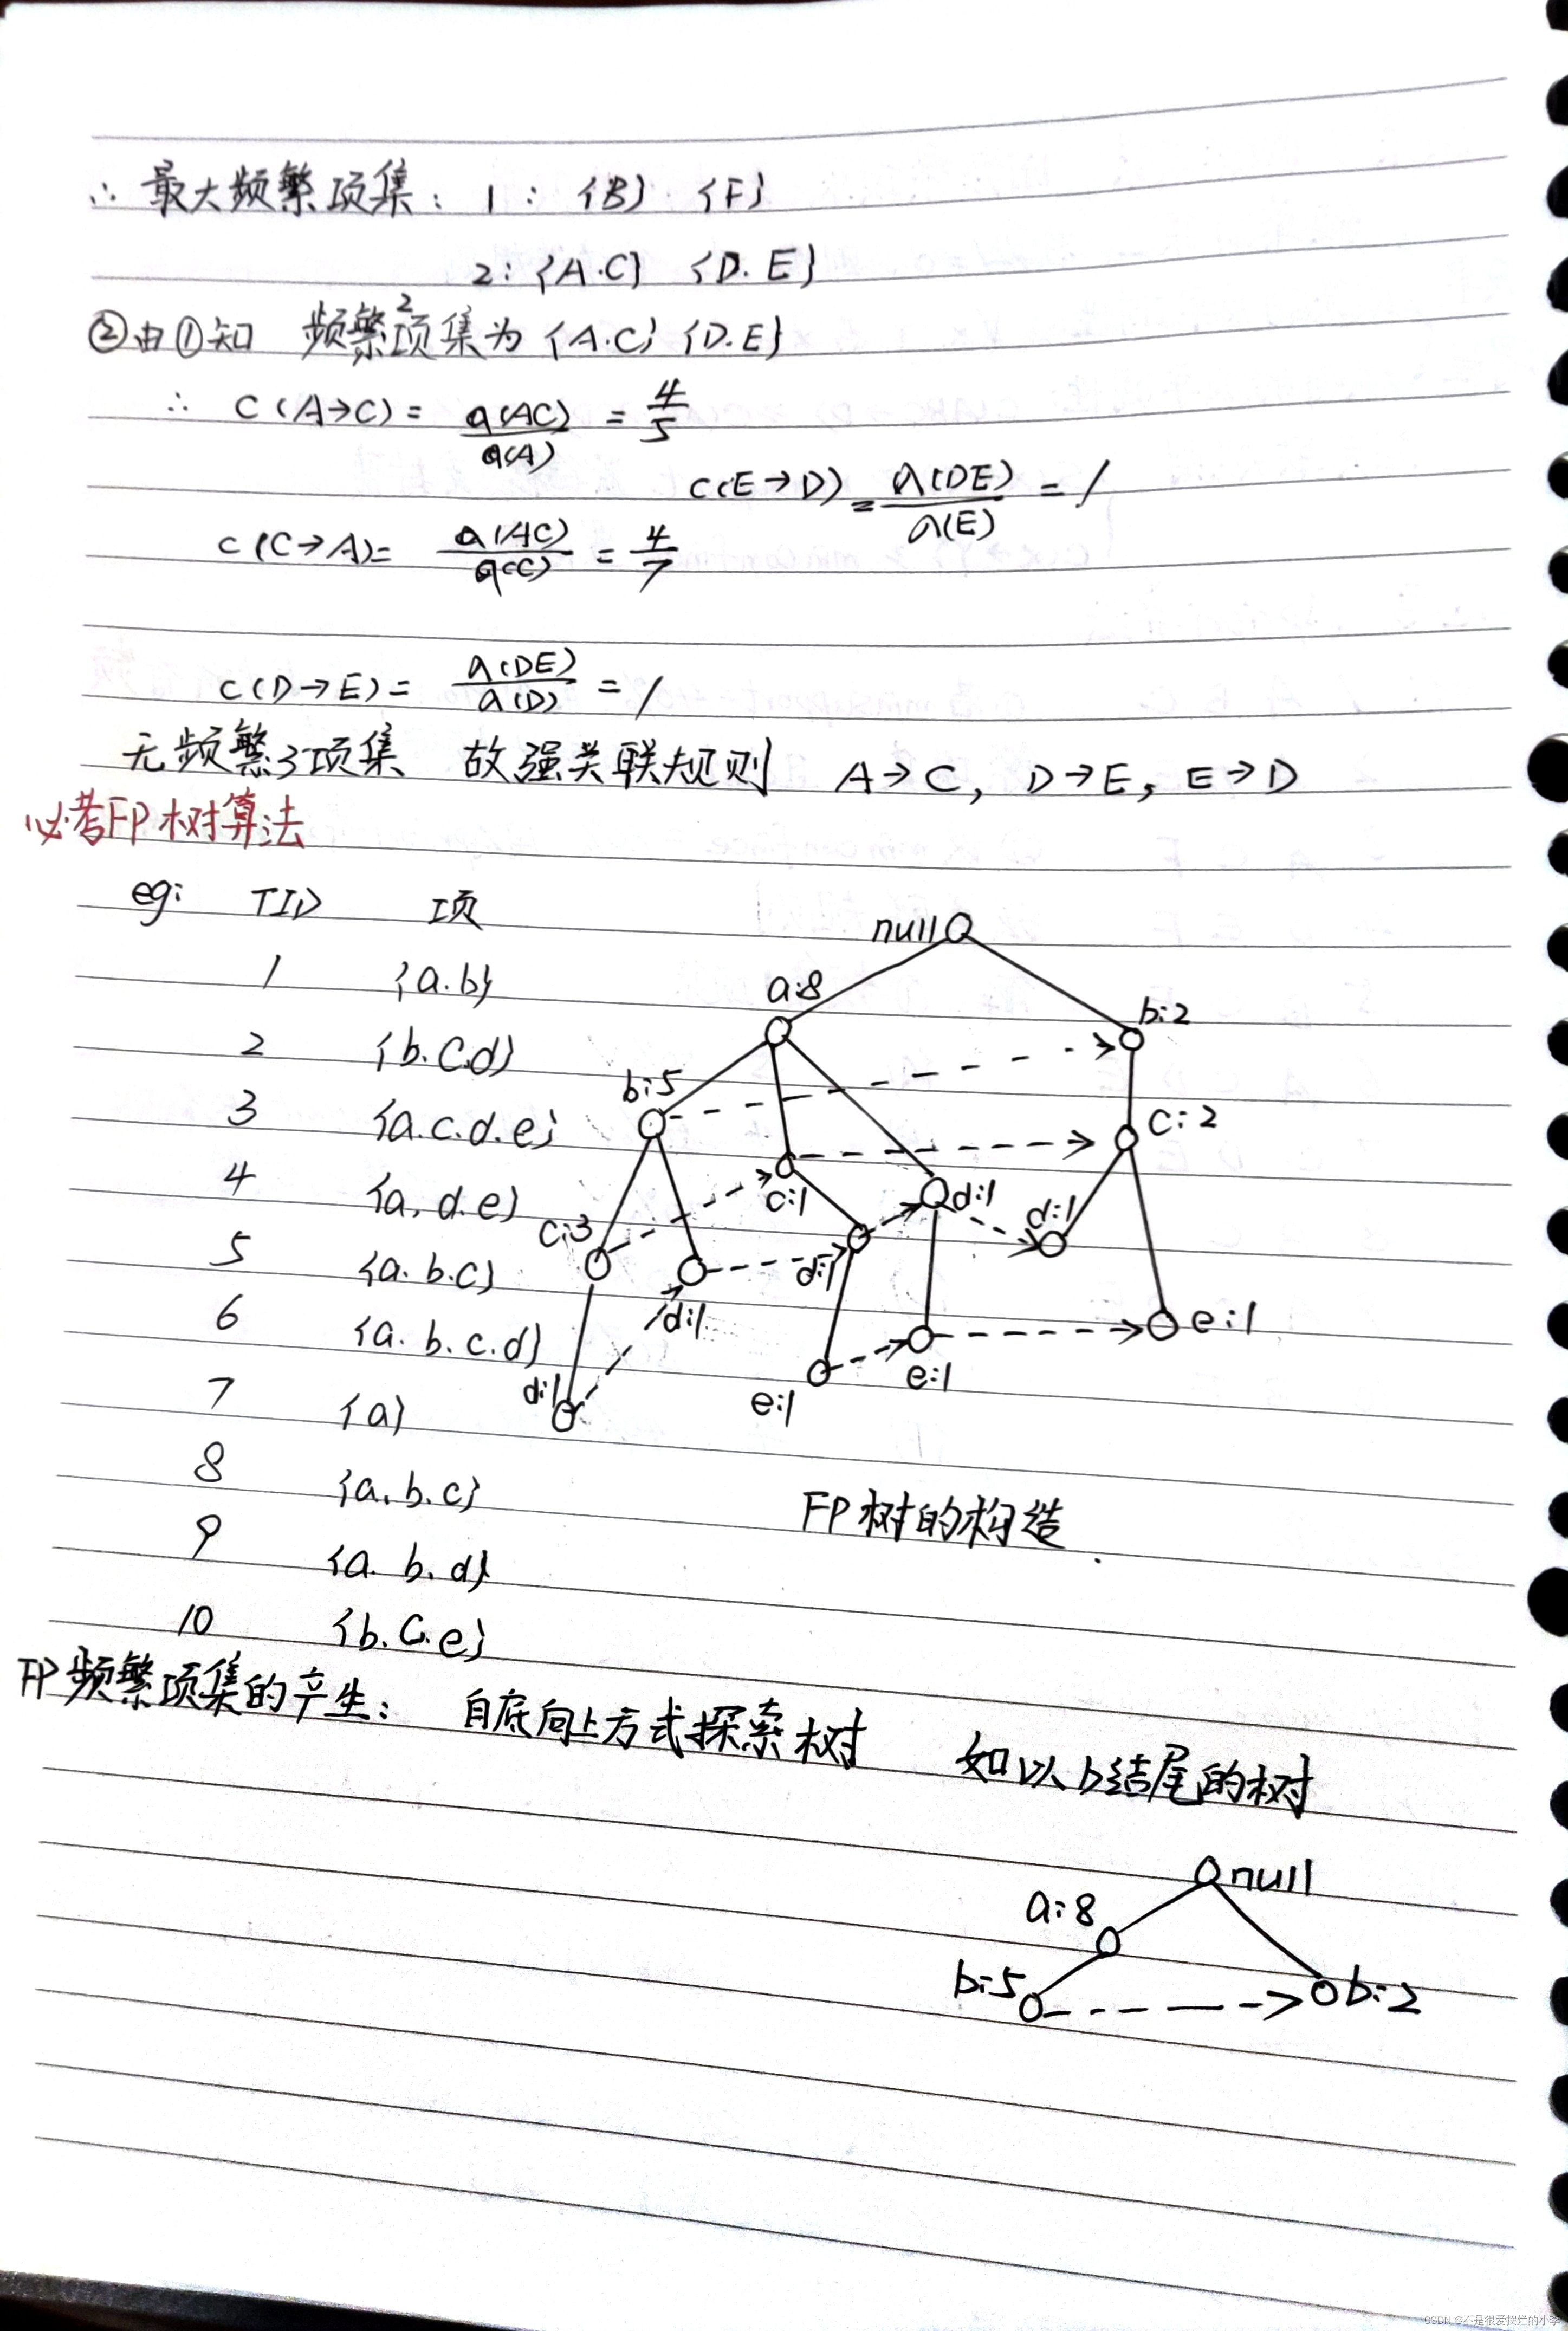 ∴ 最大频繁项集: 1: {B} {F}
2: {A.C} {D.E}
②由①知 频繁2项集为 {A.C} {D.E}
∴ C(A→C) = a(AC)/a(A) = 4/5
C(E→D) = a(DE)/a(E) = 1
C(C→A) = a(AC)/a(C) = 4/7
C(D→E) = a(DE)/a(D) = 1
无频繁3项集 故强关联规则 A→C, D→E, E→D
必考FP树算法
eg: TID 项
1 {a.b}
2 {b.c.d}
3 {a.c.d.e}
4 {a,d.e}
5 {a.b.c}
6 {a.b.c.d}
7 {a}
8 {a.b.c}
9 {a.b.d}
10 {b.c.e}
null
a:8
b:2
b:5
c:2
c:1
d:1
d:1
c:3
d:1
d:1
e:1
d:1
e:1
e:1
FP树的构造
FP频繁项集的产生: 自底向上方式探索树 如以b结尾的树
null
a:8
b:5
b:2
CSDN @不是很爱摆烂的小李